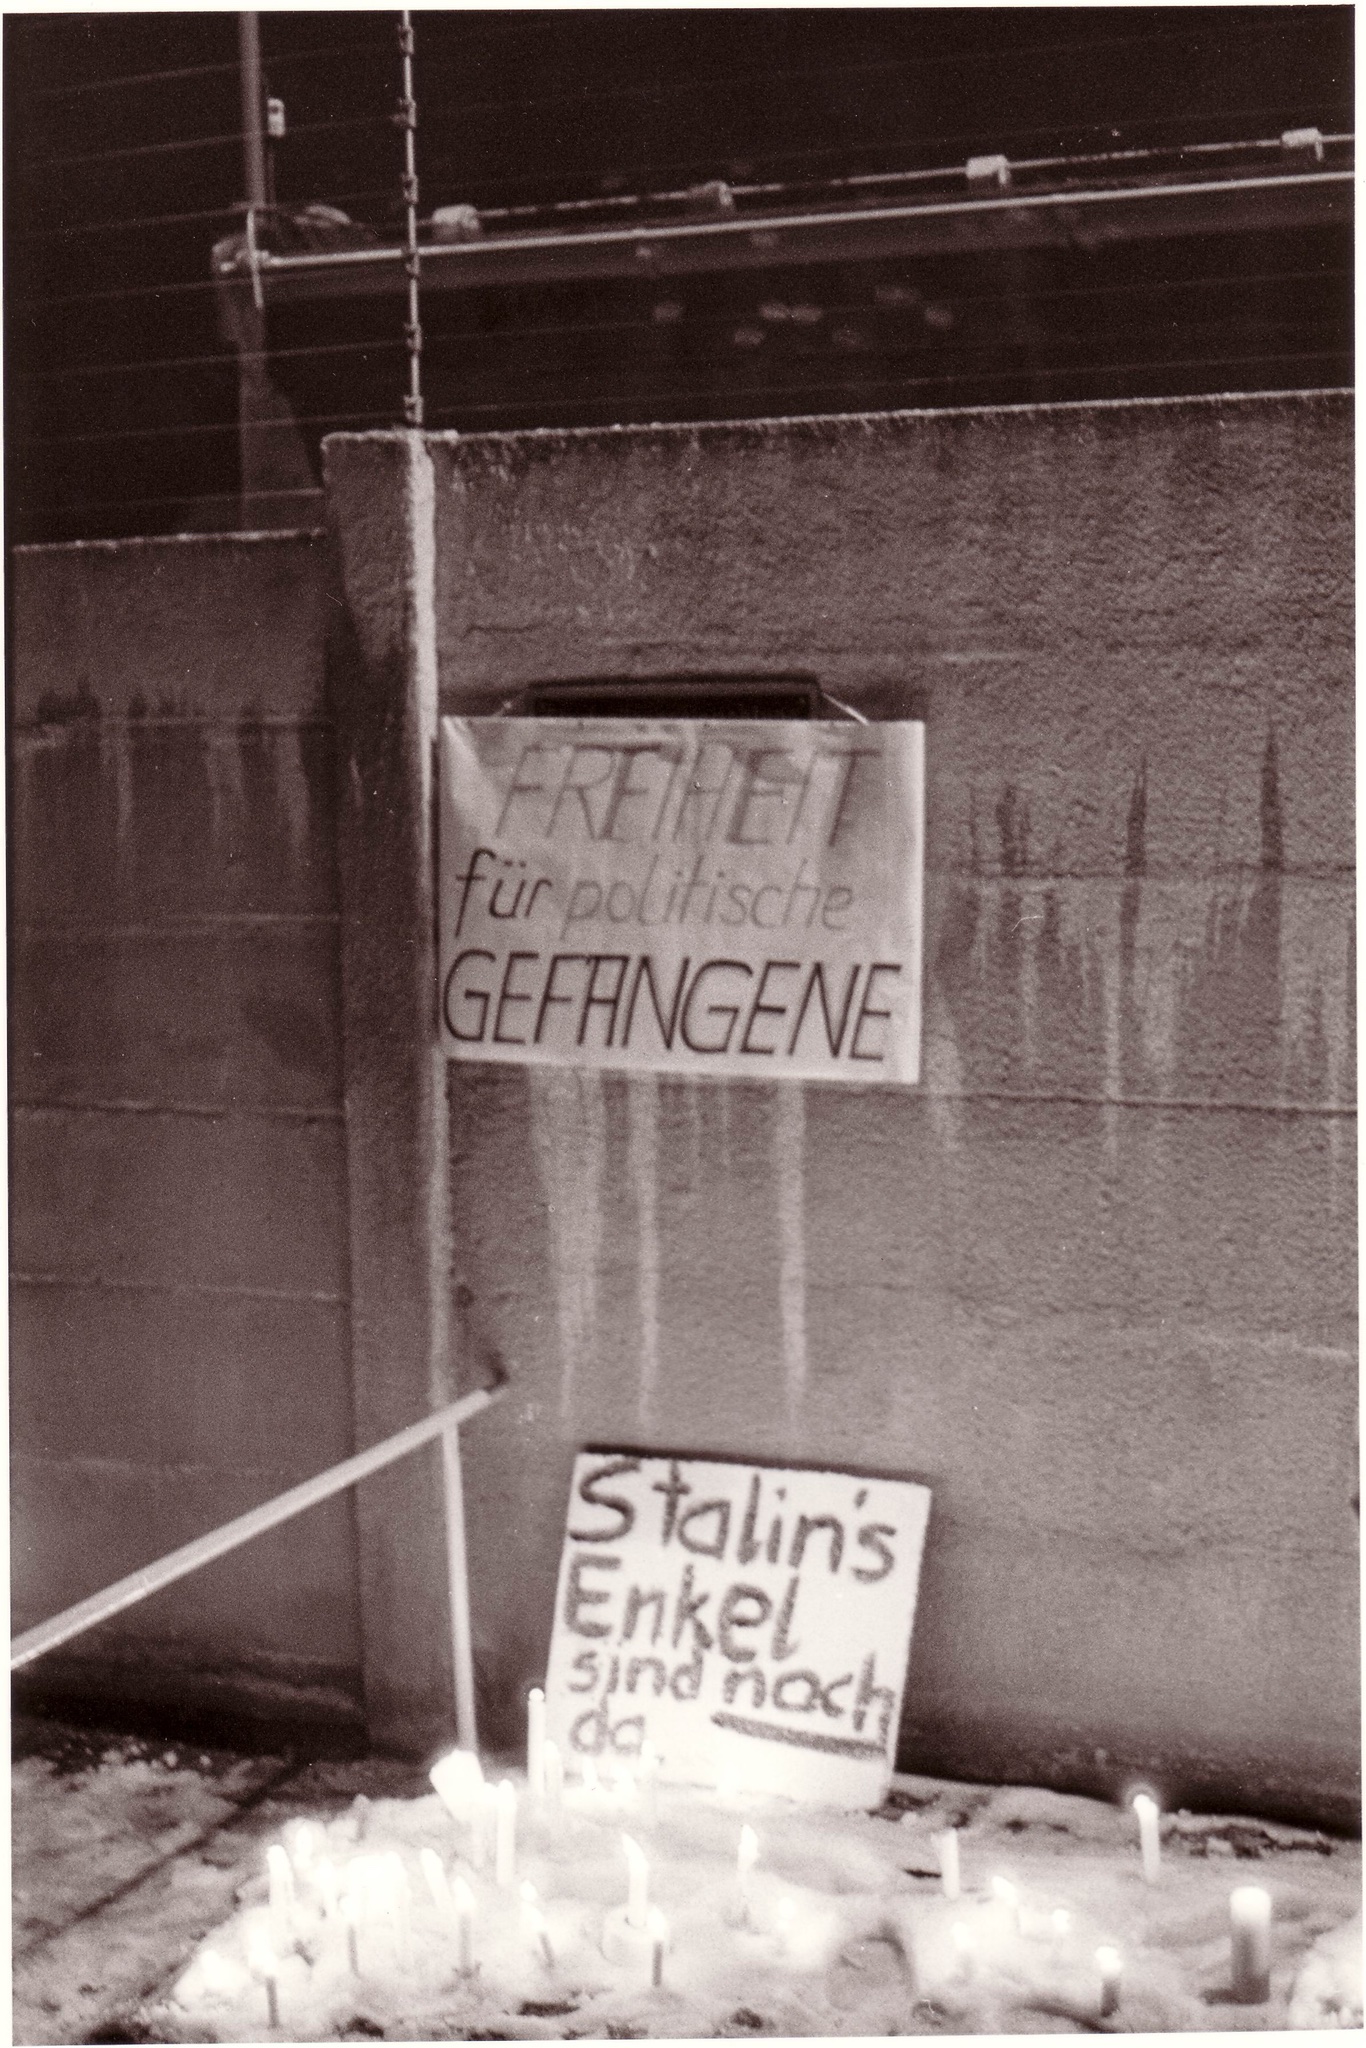 FREIHEIT
für politische
GEFANGENE
Stalin's
Enkel
sind noch
da